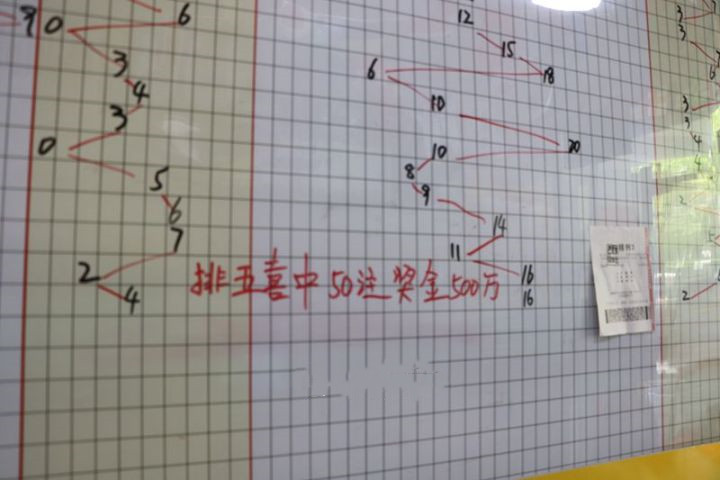 6
9 0
3
4
3
0
5
6
7
2
4
12
15
6 18
10
10 20
8
9
14
11
16
排五喜中50注奖金500万
16
3
3
3
3
4
2
2